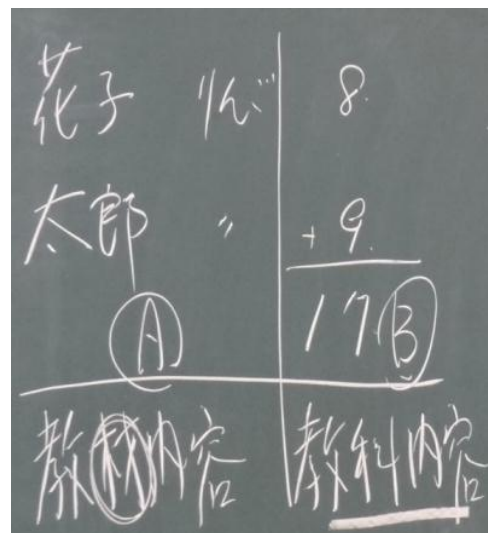 花子 りんご 8.
太郎 〃 +9.
Ⓐ 17 Ⓑ
教材内容 教科内容